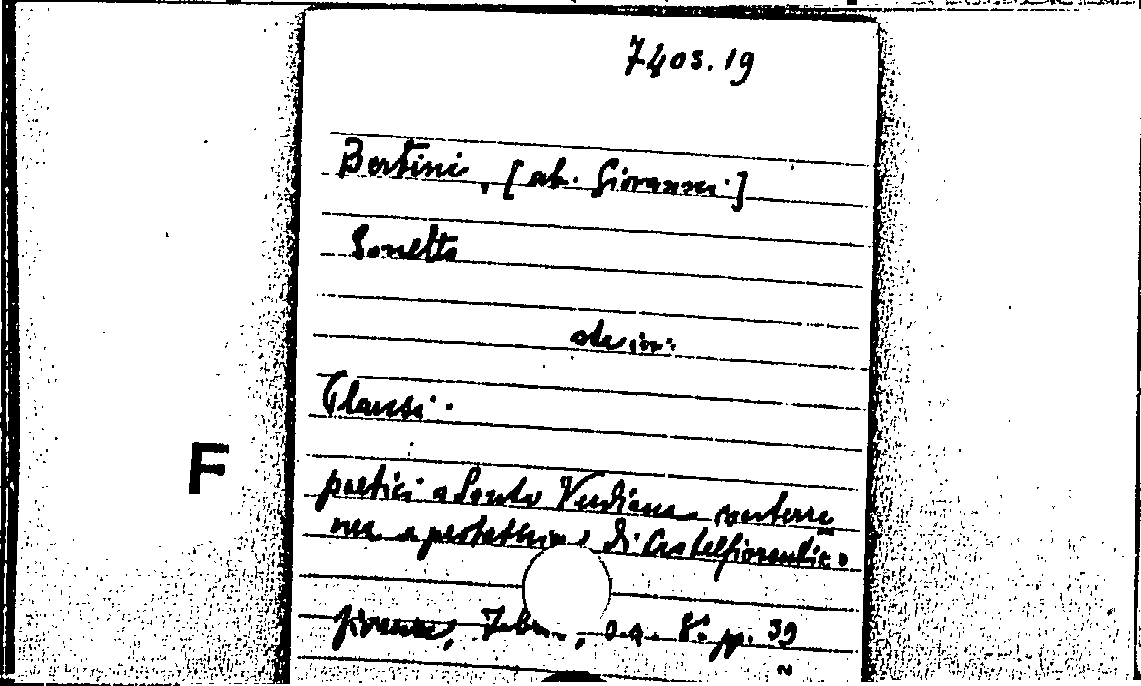 7403.19
Bertini, [ab. Giovanni]
Sonetto
sta in:
Plausi
F
poetici a Santa Verdiana conterra
nea e protettrice di Castelfiorentino
Firenze, , s.a. 8.° pp. 39